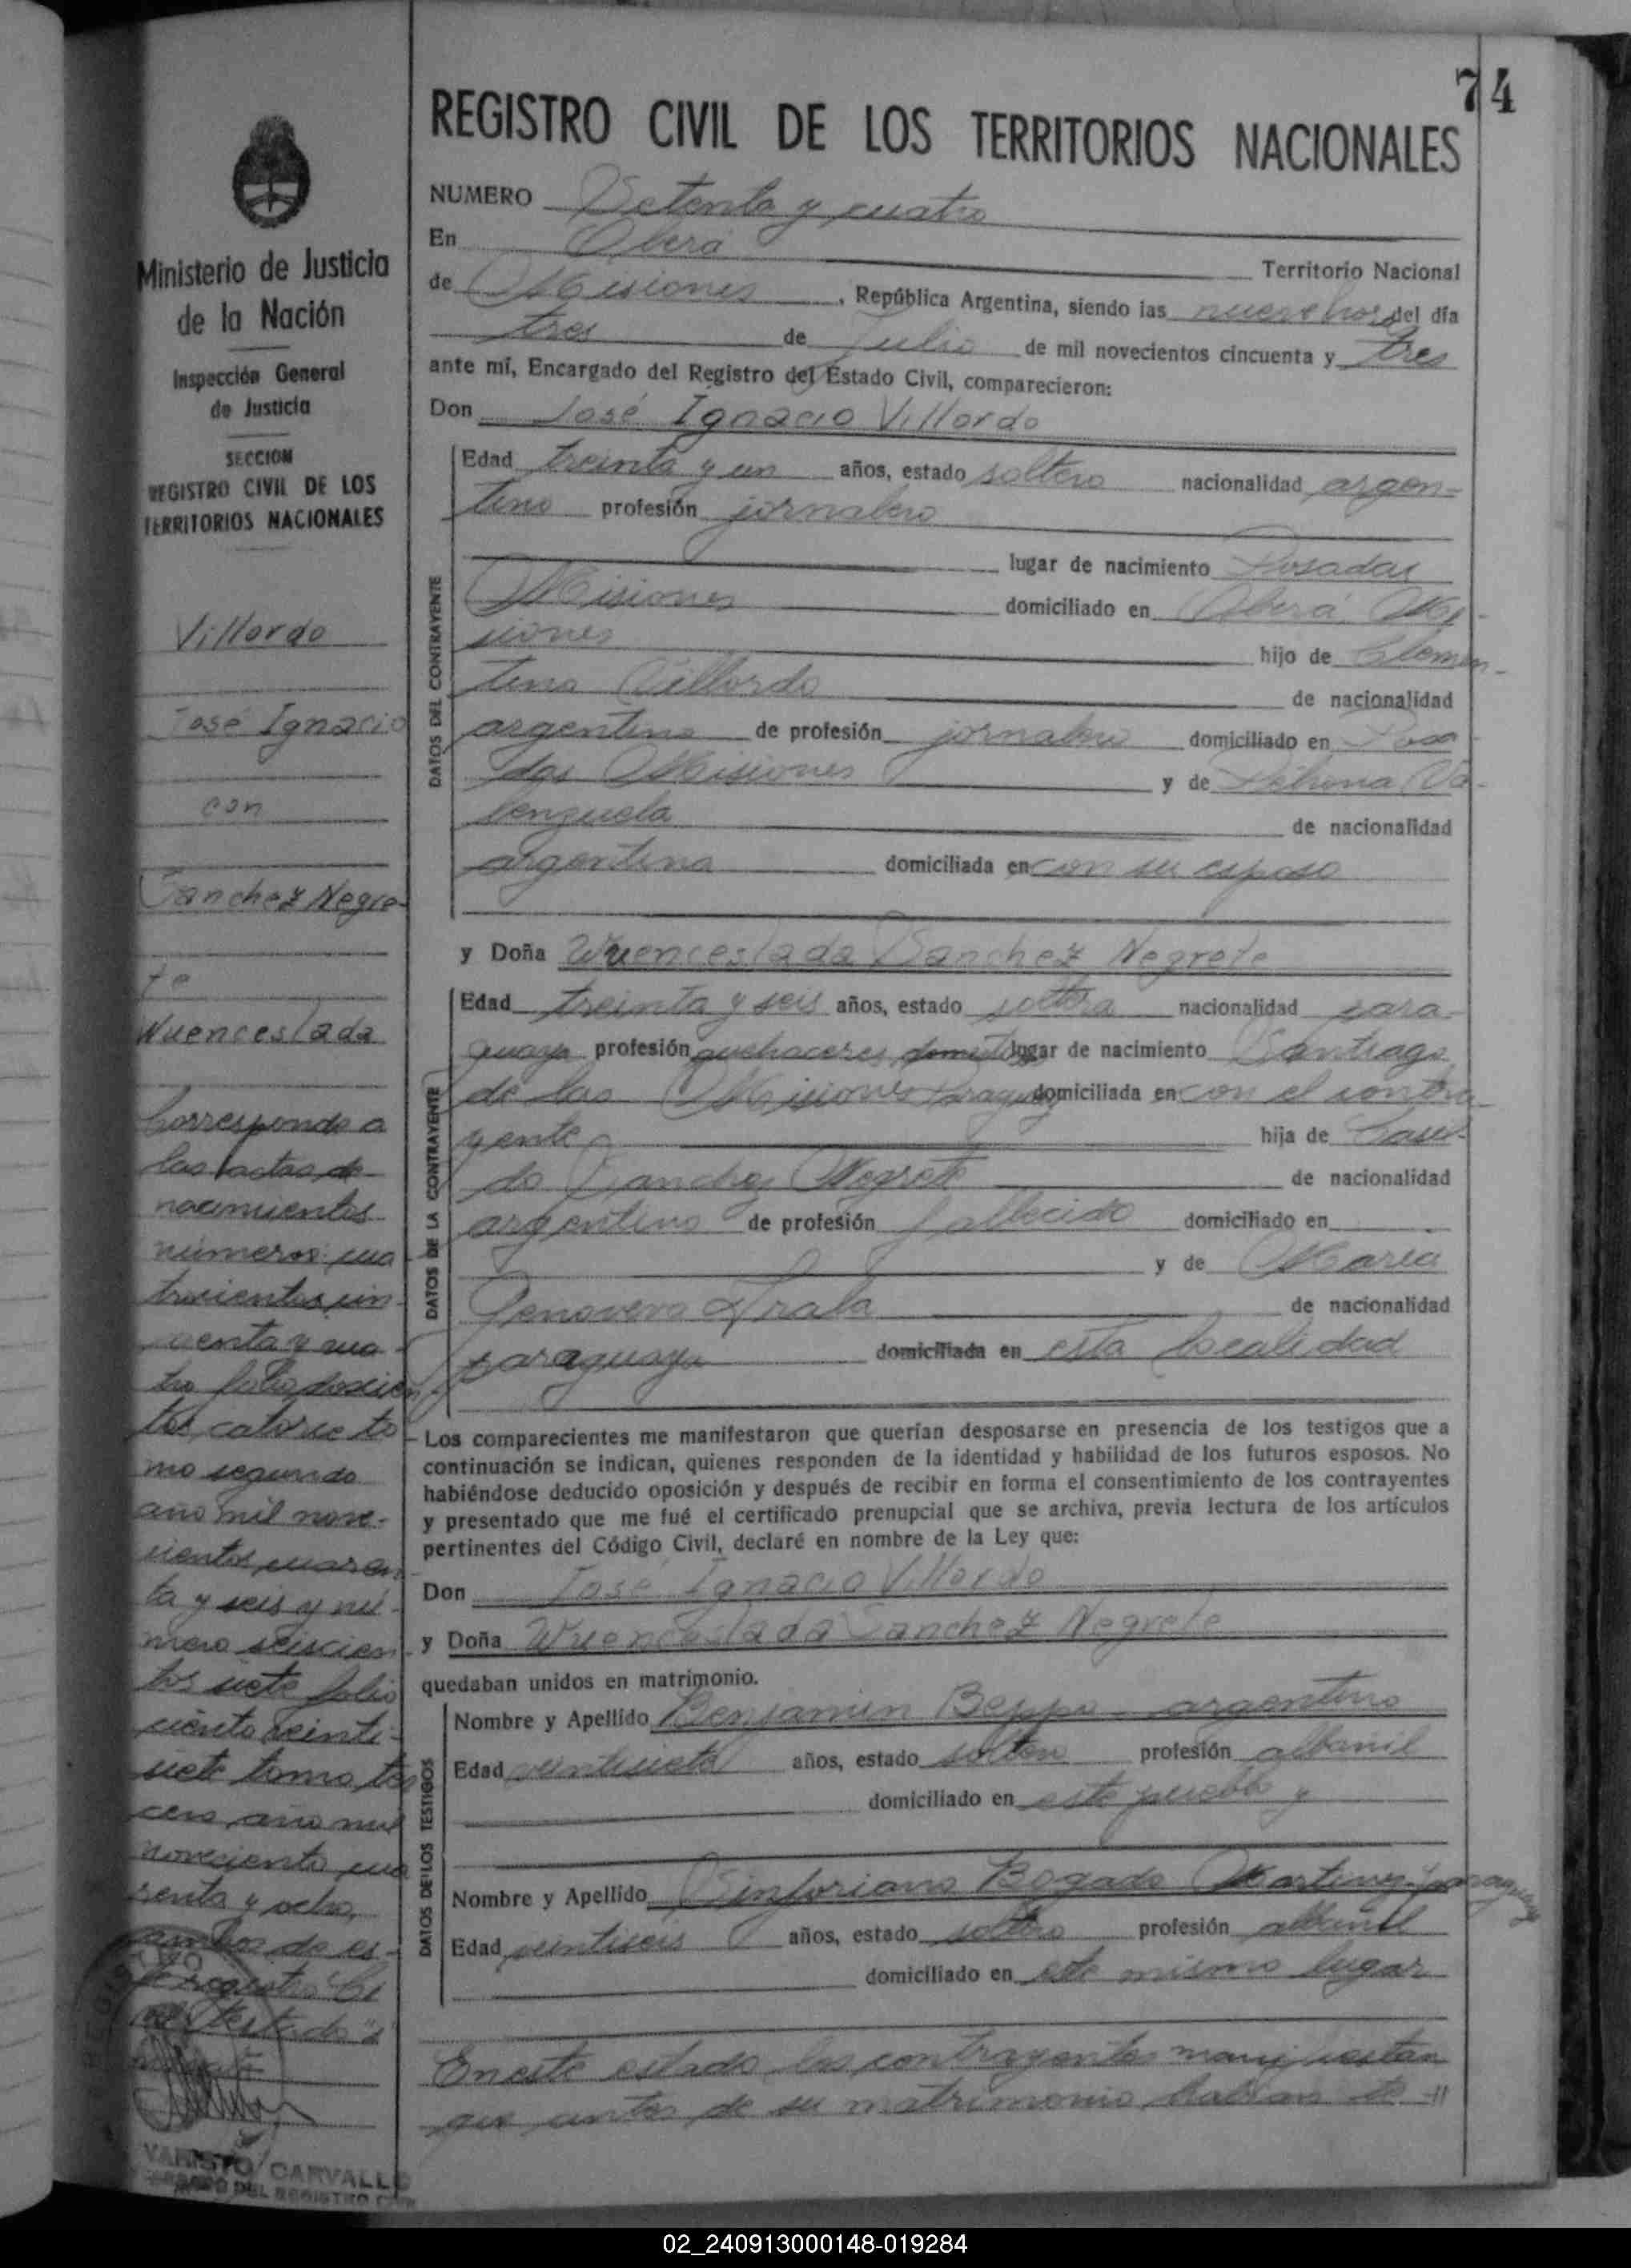 74
REGISTRO CIVIL DE LOS TERRITORIOS NACIONALES
NUMERO Setenta y cuatro
En Oberá
Territorio Nacional
de Misiones, República Argentina, siendo las nueve horas del día
tres de Julio de mil novecientos cincuenta y tres
ante mí, Encargado del Registro del Estado Civil, comparecieron:
Don José Ignacio Villordo
DATOS DEL CONTRAYENTE
Edad treinta y un años, estado soltero nacionalidad argen-
tino profesión jornalero
lugar de nacimiento Posadas
Misiones domiciliado en Oberá Mi-
siones hijo de Clemen-
tino Villordo de nacionalidad
argentino de profesión jornalero domiciliado en Posa-
das Misiones y de Va-
lenzuela de nacionalidad
argentina domiciliada en con su esposo
y Doña Wuenceslada Sanchez Negrete
DATOS DE LA CONTRAYENTE
Edad treinta y seis años, estado soltera nacionalidad para-
guaya profesión quehaceres domest lugar de nacimiento Santiago
de las Misiones Paraguay domiciliada en con el contra-
yente hija de
do Sanchez Negrete de nacionalidad
argentino de profesión fallecido domiciliado en
y de María
Genoveva Irala de nacionalidad
paraguaya domiciliada en esta localidad
Los comparecientes me manifestaron que querían desposarse en presencia de los testigos que a
continuación se indican, quienes responden de la identidad y habilidad de los futuros esposos. No
habiéndose deducido oposición y después de recibir en forma el consentimiento de los contrayentes
y presentado que me fué el certificado prenupcial que se archiva, previa lectura de los artículos
pertinentes del Código Civil, declaré en nombre de la Ley que:
Don José Ignacio Villordo
y Doña Wuenceslada Sanchez Negrete
quedaban unidos en matrimonio.
DATOS DE LOS TESTIGOS
Nombre y Apellido Benjamin Beppo - argentino
Edad veintisiete años, estado soltero profesión albanil
domiciliado en este pueblo y
Nombre y Apellido Sinforiano Bogado Martinez paraguayo
Edad veintiseis años, estado soltero profesión albanil
domiciliado en este mismo lugar
En este estado los contrayentes manifiestan
que antes de su matrimonio habian te-//
Ministerio de Justicia
de la Nación
Inspección General
de Justicia
SECCION
REGISTRO CIVIL DE LOS
TERRITORIOS NACIONALES
Villordo
José Ignacio
con
Sanchez Negre-
te
Wuenceslada
Corresponde a
las actas de
nacimientos
números cua
trocientos cin
cuenta y cua
tro folio doscien
tos catorce to
mo segundo
año mil nove-
cientos cuaren
ta y seis y nú-
mero seiscien
tos siete folio
ciento veinti-
siete tomo ter
cero, año mil
novecientos cua
renta y ocho,
ambos de es-
te registro Ci
vil Testado
VARISTO CARVALLO
DEL REGISTRO CIVIL
02_240913000148-019284